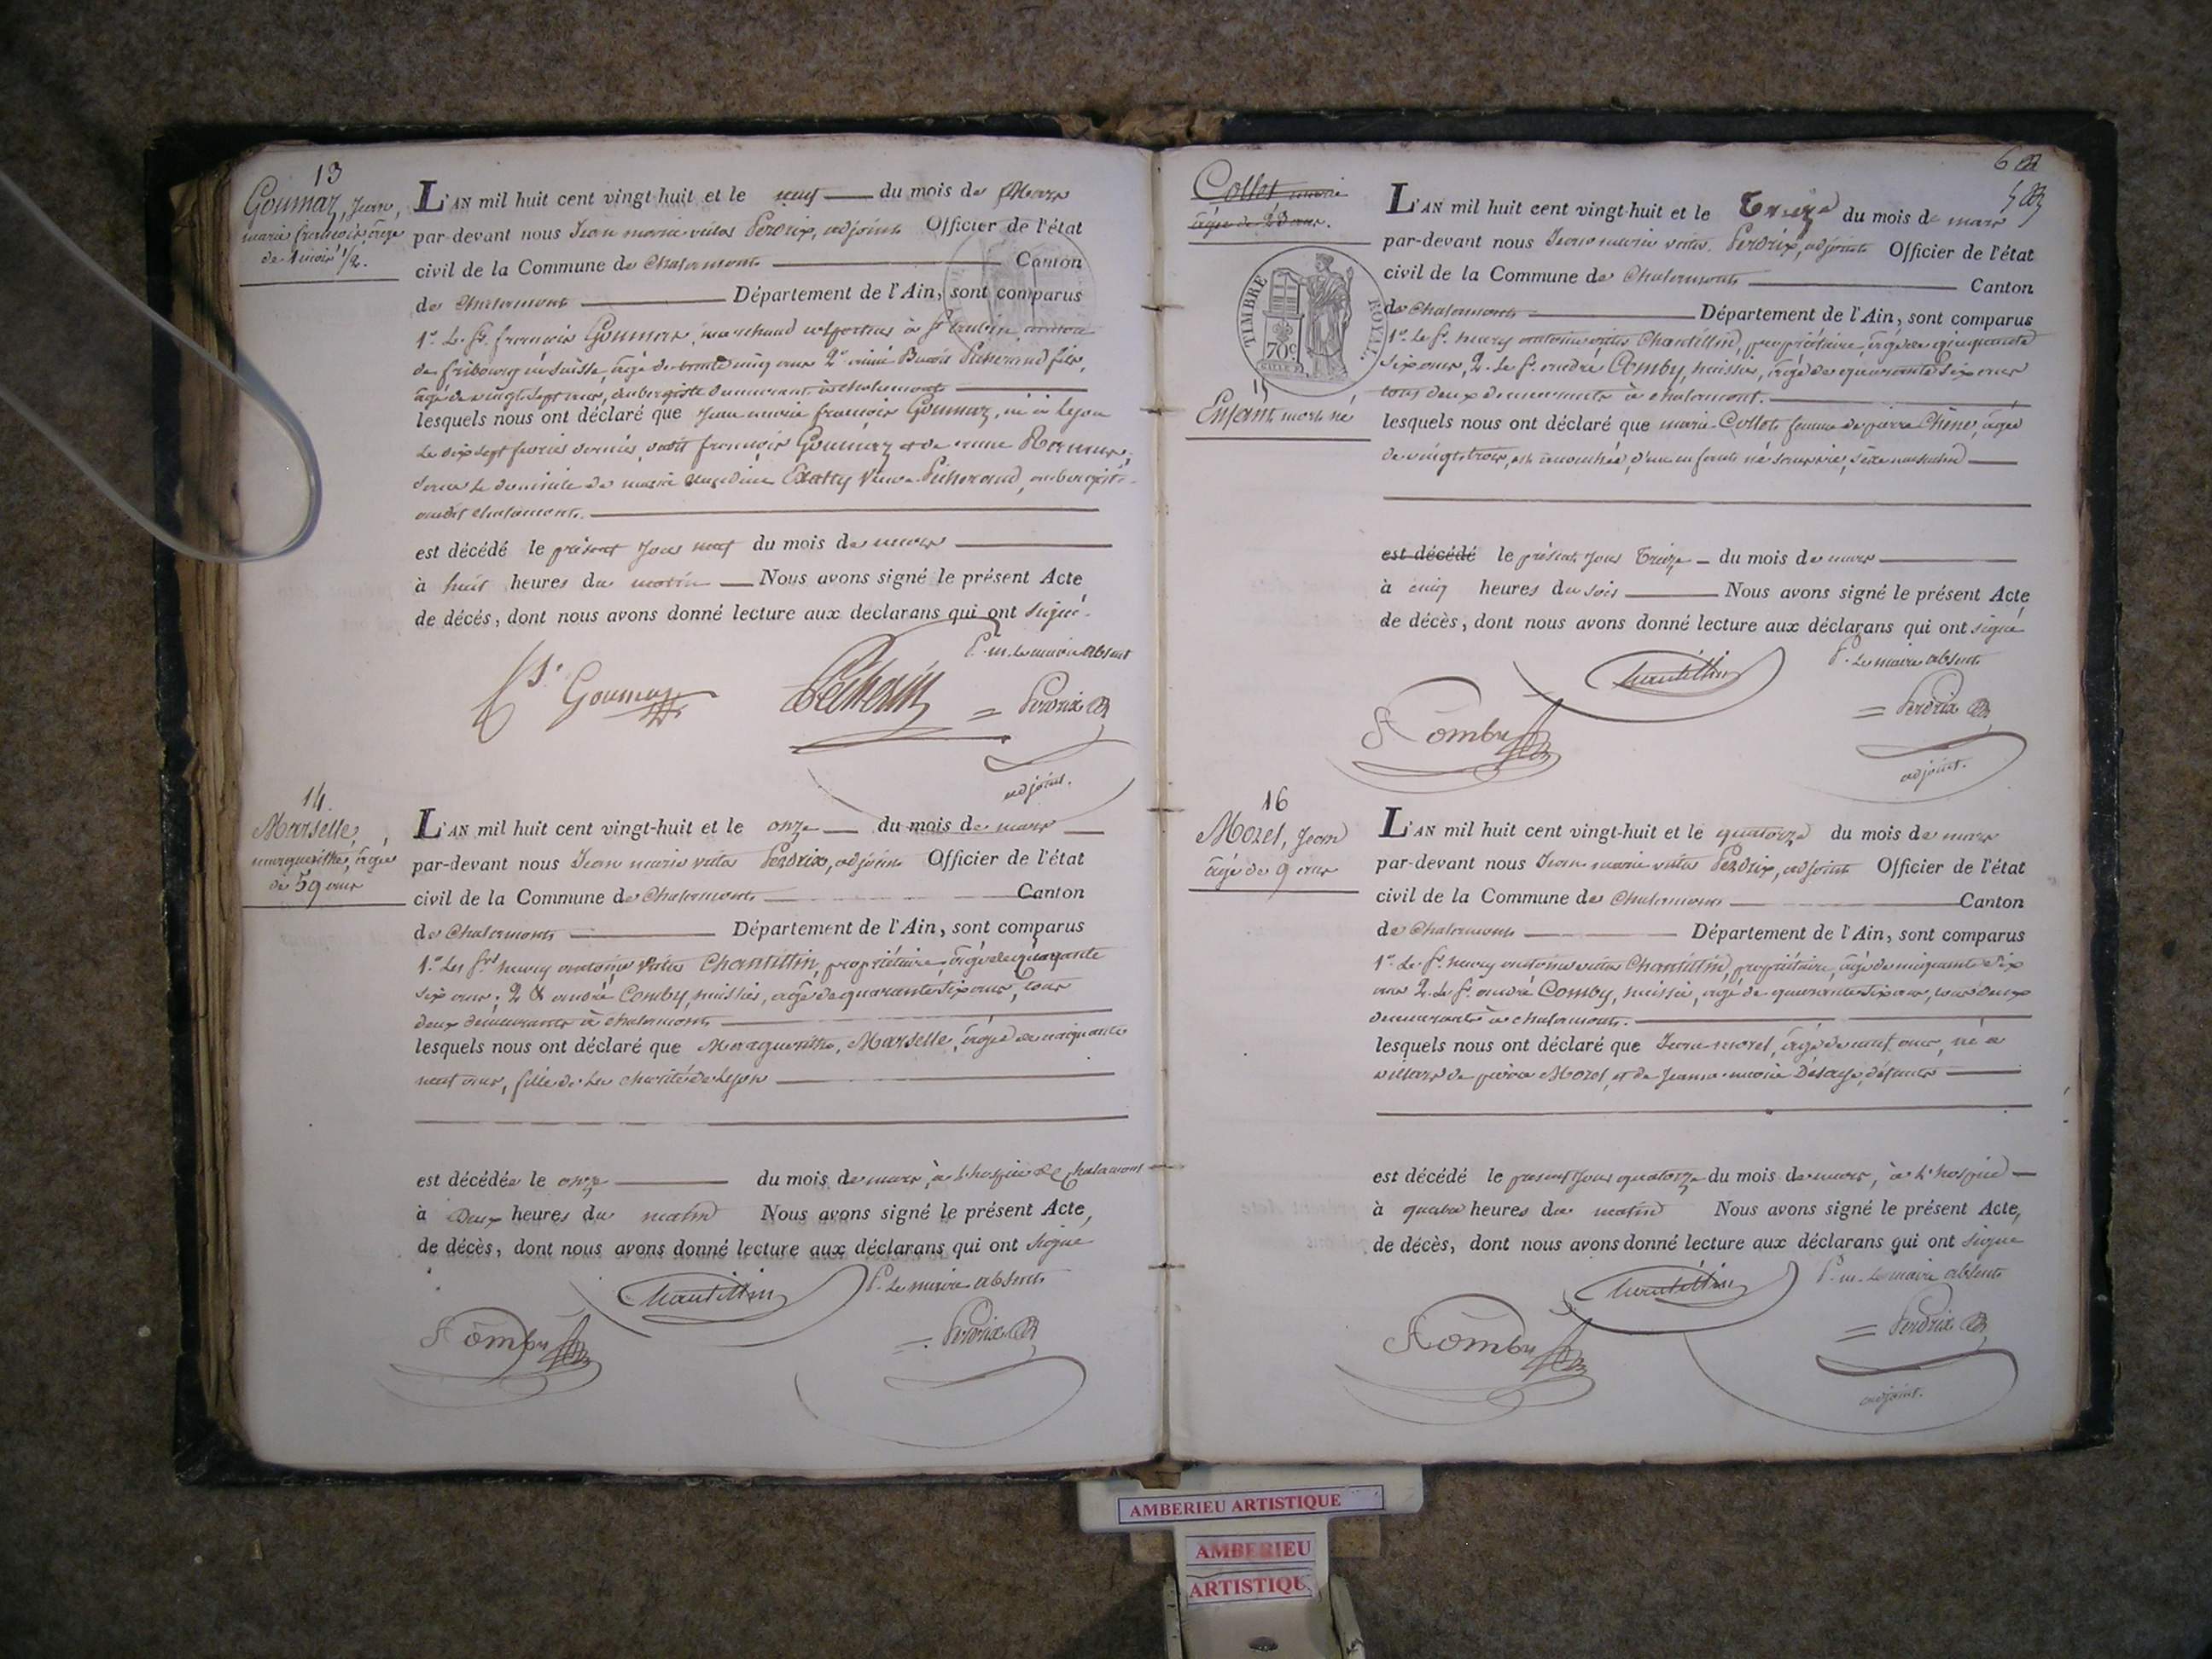 13
Goumaz, Jean,
marie françois, âgé
de 1 mois 1/2.
L'AN mil huit cent vingt-huit et le neuf du mois de Mars
par-devant nous Jean marie vital Perdrix, adjoint Officier de l'état
civil de la Commune de Chalamont Canton
de Chalamont Département de l'Ain, sont comparus
1º. Le Sr. françois Goumaz, marchand colporteur à St aubin, canton
de fribourg en Suisse, âgé de trente cinq ans 2º aimé Benoit fils,
âgé de vingt sept ans, aubergiste demeurant à chalamont
lesquels nous ont déclaré que Jean marie françois Goumaz, né à Lyon
Le dix sept fevrier dernier, dudit françois Goumaz et de anne
dans le domicile de marie veuve aubergiste
audit chalamont.
est décédé le présent jour neuf du mois de mars
à huit heures du matin Nous avons signé le présent Acte
de décés, dont nous avons donné lecture aux declarans qui ont signé.
P. m. le maire absent
Goumaz
Perdrix
adjoint.
14.
Marselle,
margueritte, âgée
de 59 ans
L'AN mil huit cent vingt-huit et le onze du mois de mars
par-devant nous Jean marie vital Perdrix, adjoint Officier de l'état
civil de la Commune de Chalamont Canton
de Chalamont Département de l'Ain, sont comparus
1º. Les Srs henry antoine vital Chantillin, propriétaire, âgé de
six ans; 2º & andré Comby, huissier, âgé de quarante six ans, tous
deux demeurants à chalamont
lesquels nous ont déclaré que Margueritte, Marselle, âgée de cinquante
neuf ans, fille de la charité de Lyon
est décédée le onze du mois de mars, à l'hospice de Chalamont
à Deux heures du matin Nous avons signé le présent Acte,
de décès, dont nous avons donné lecture aux déclarans qui ont signé
Chantillin P. le maire absent
A Comby Perdrix
6
Collet, marie
âgée de 23 ans.
TIMBRE ROYAL
70c
L'AN mil huit cent vingt-huit et le Treize du mois de mars
par-devant nous Jean marie vital Perdrix, adjoint Officier de l'état
civil de la Commune de Chalamont Canton
de Chalamont Département de l'Ain, sont comparus
1º. Le Sr. henry antoine vital Chantillin, propriétaire, âgé de cinquante
six ans, 2. Le Sr. andré Comby, huissier, âgé de quarante six ans
tous deux demeurants à chalamont.
15
Enfant mort né
lesquels nous ont déclaré que marie Collet, femme de pierre Chêne, âgée
de vingt trois, est accouchée, d'un enfant né sans vie, sexe masculin
est décédé le présent jour Treize du mois de mars
à cinq heures du soir Nous avons signé le présent Acte
de décès, dont nous avons donné lecture aux déclarans qui ont signé
P. le maire absent
Chantillin
A Comby Perdrix
adjoint.
16
Morel, Jean
âgé de 9 ans
L'AN mil huit cent vingt-huit et le quatorze du mois de mars
par-devant nous Jean marie vital Perdrix, adjoint Officier de l'état
civil de la Commune de Chalamont Canton
de Chalamont Département de l'Ain, sont comparus
1º. Le Sr. henry antoine vital Chantillin, propriétaire, âgé de cinquante six
ans 2. Le Sr. andré Comby, huissier, âgé de quarante six ans, tous deux
demeurants à chalamont.
lesquels nous ont déclaré que Jean morel, âgé de neuf ans, né à
villars de pierre Morel, et de Jeanne-marie défunts
est décédé le present jour quatorze du mois de mars, à l'hospice
à quatre heures du matin Nous avons signé le présent Acte,
de décès, dont nous avons donné lecture aux déclarans qui ont signé
Chantillin P. m. le maire absent
A Comby Perdrix
adjoint.
AMBERIEU ARTISTIQUE
AMBERIEU
ARTISTIQU